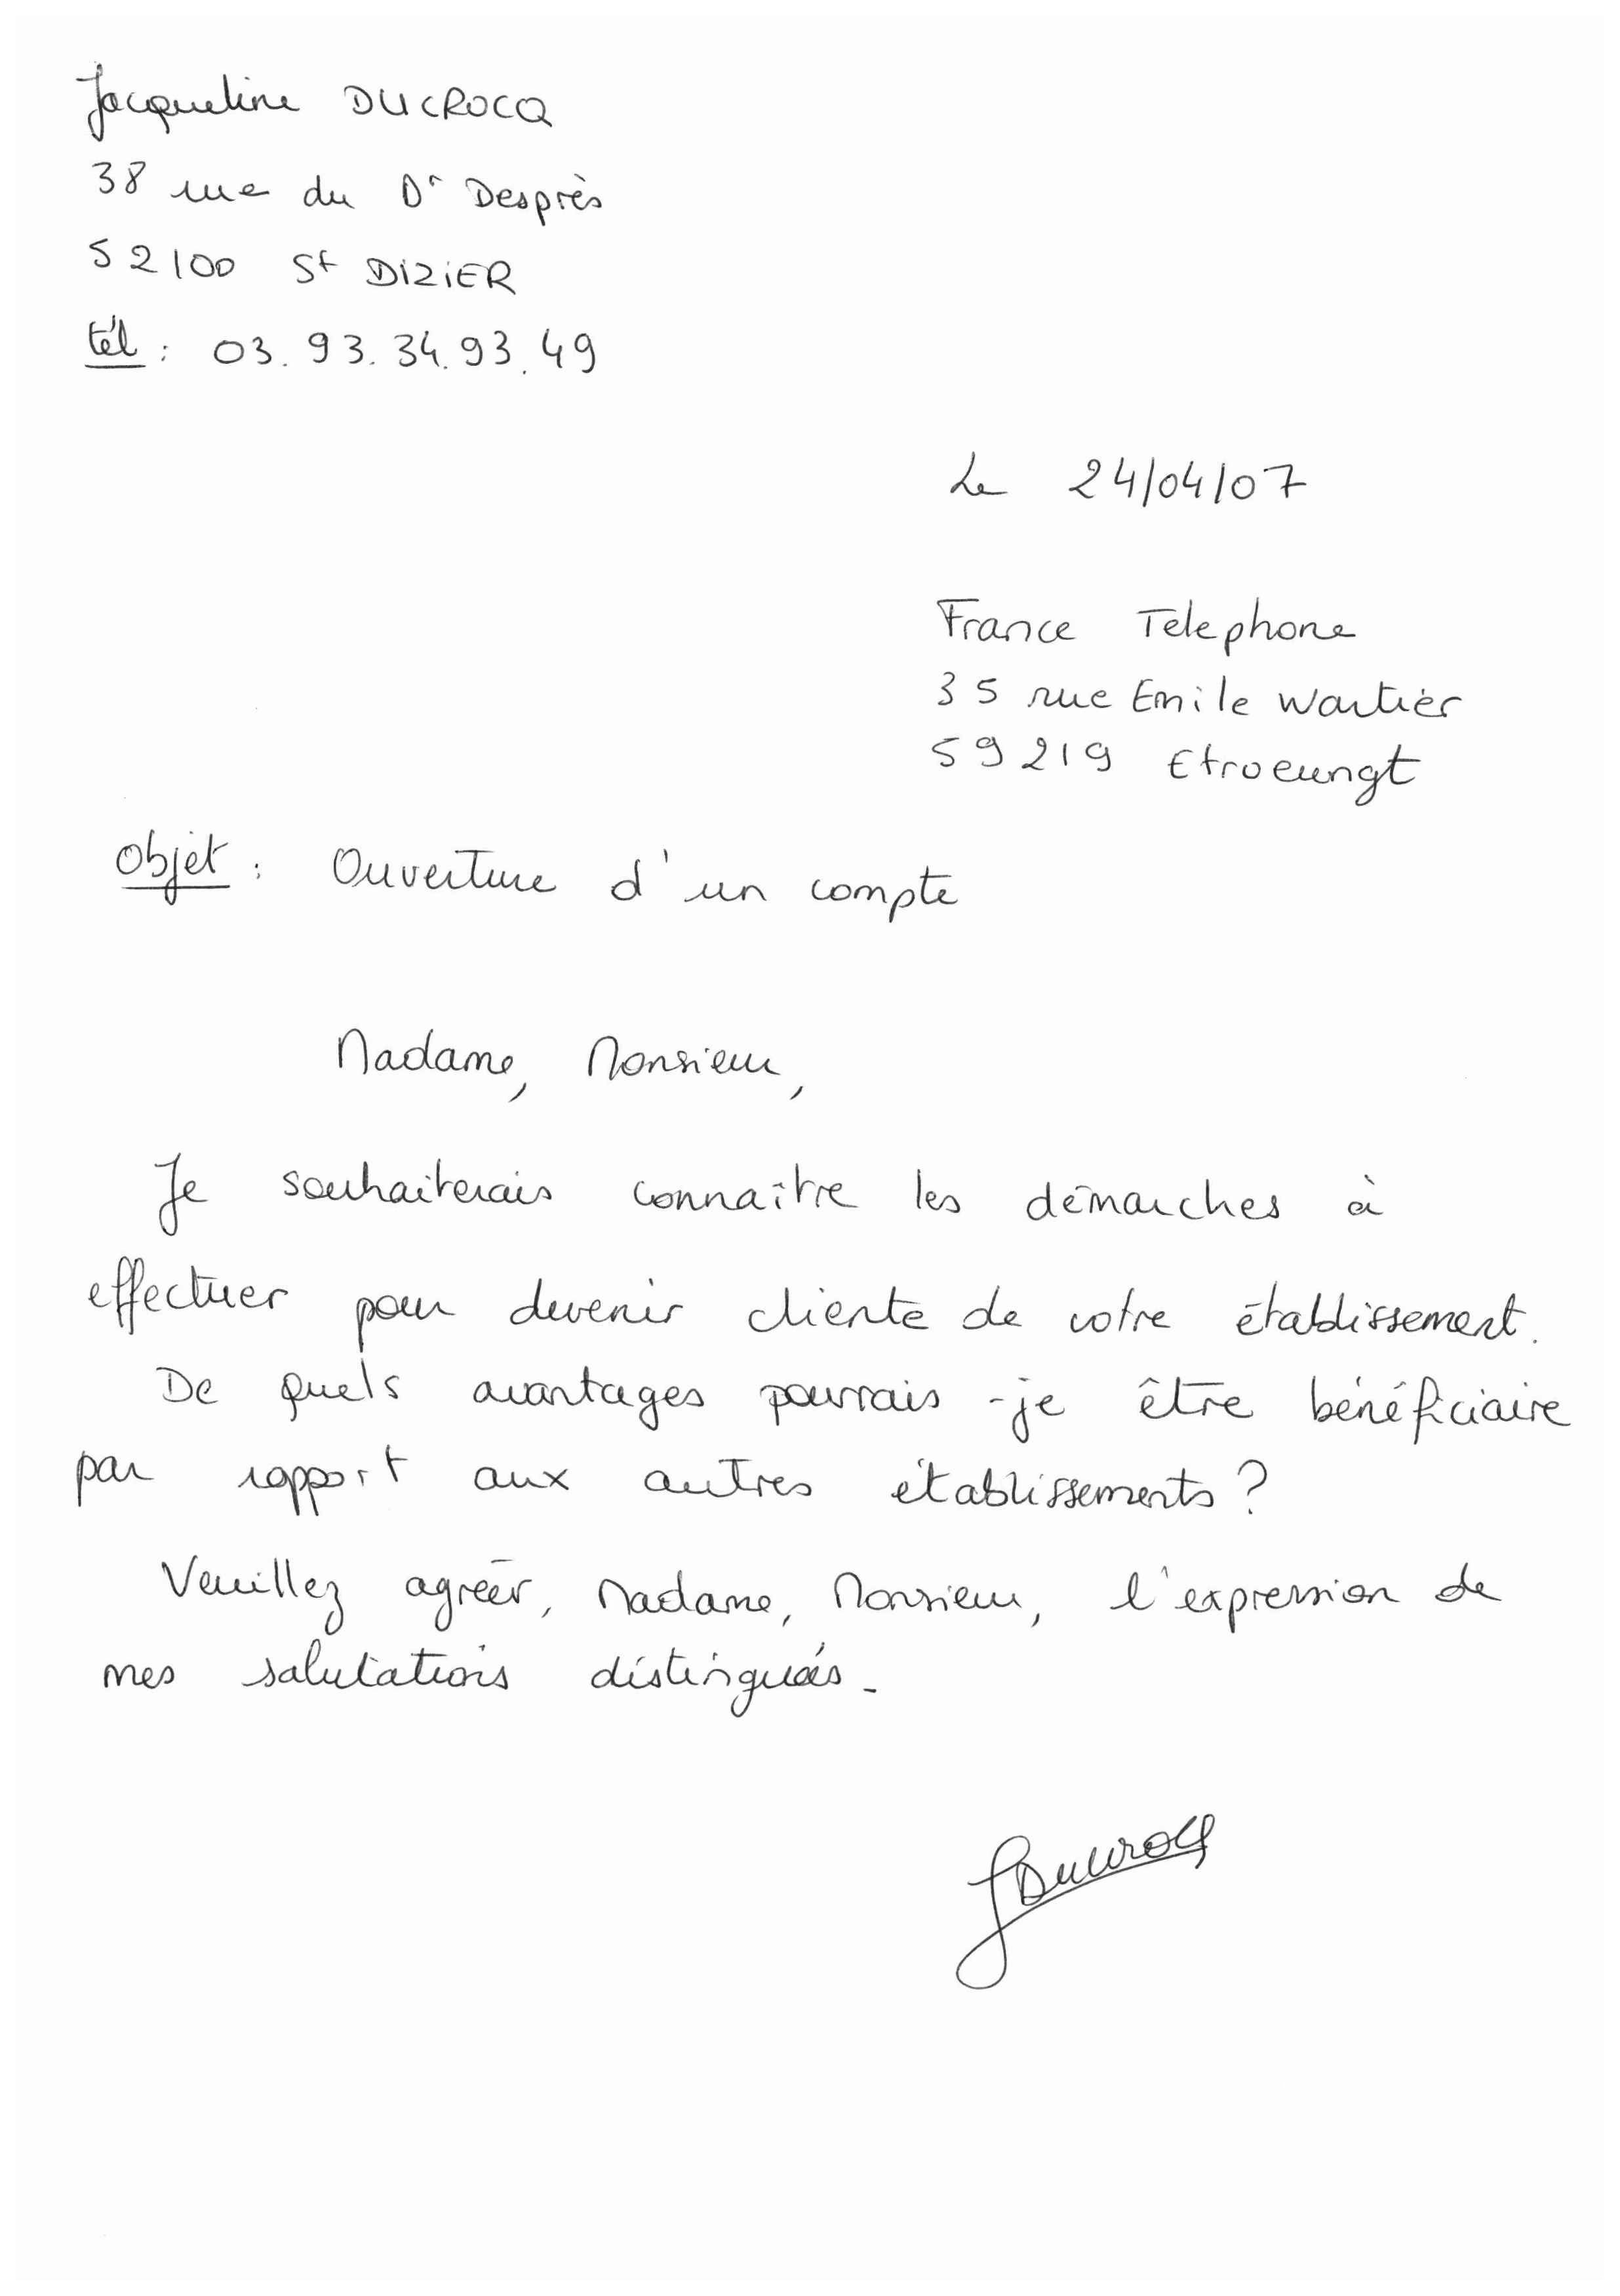 Jacqueline DUCROCQ
38 rue du Dr Desprès
52100 St DIZIER
tél : 03.93.34.93.49
Le 24/04/07
France Telephone
35 rue Emile Wartier
59219 Etroeungt
Objet : Ouverture d'un compte
Madame, Monsieur,
Je souhaiterais connaître les démarches à
effectuer pour devenir cliente de votre établissement.
De quels avantages pourrais-je être bénéficiaire
par rapport aux autres établissements ?
Veuillez agréer, Madame, Monsieur, l'expression de
mes salutations distingués.
JDucrocq